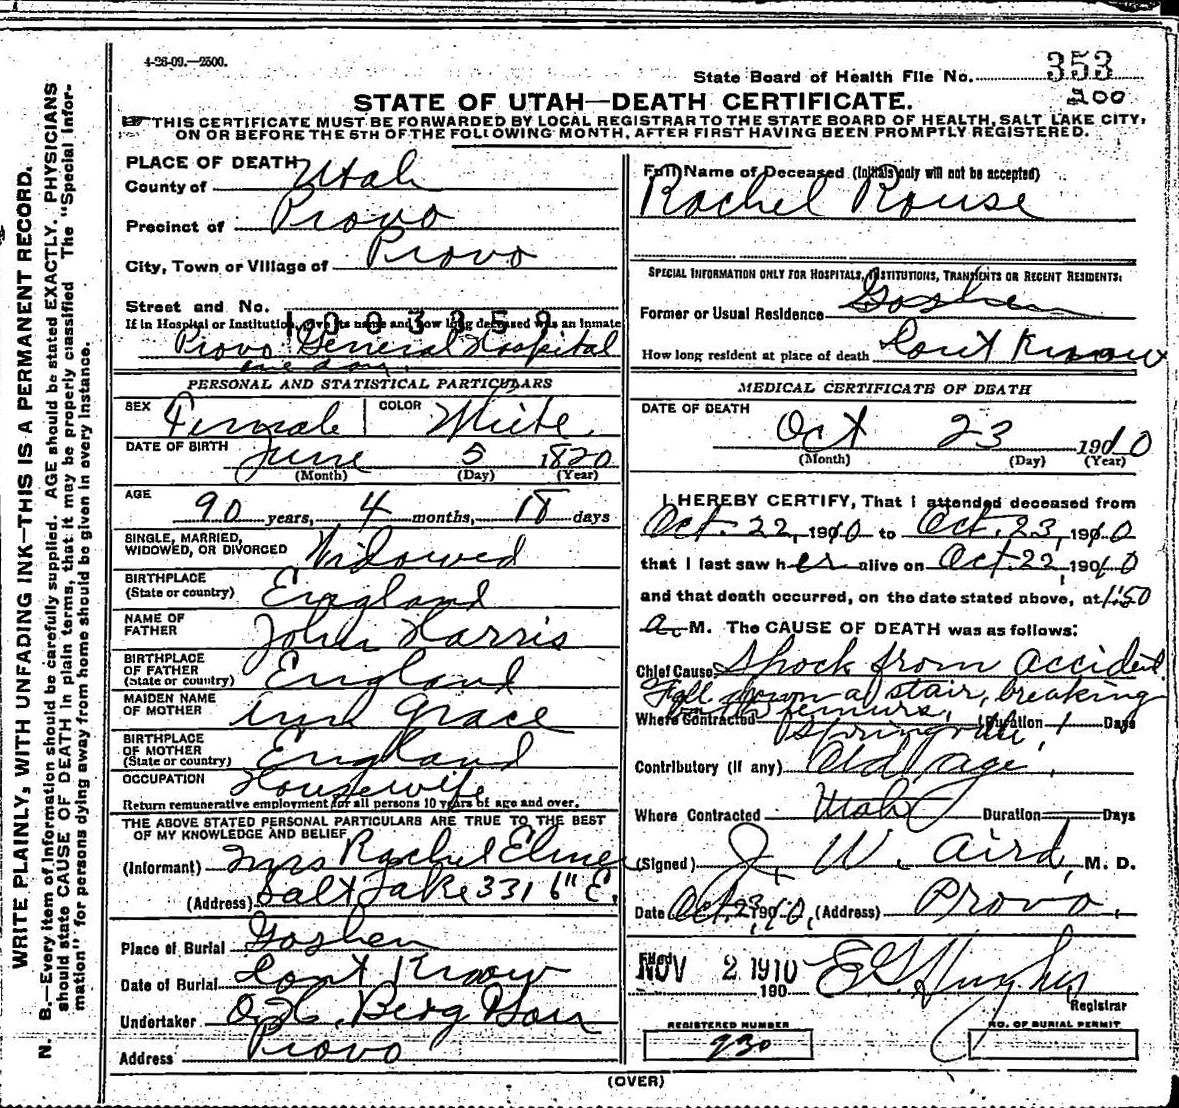 4-26-09.—2500.
State Board of Health File No. 353
200
STATE OF UTAH—DEATH CERTIFICATE.
THIS CERTIFICATE MUST BE FORWARDED BY LOCAL REGISTRAR TO THE STATE BOARD OF HEALTH, SALT LAKE CITY,
ON OR BEFORE THE 5TH OF THE FOLLOWING MONTH, AFTER FIRST HAVING BEEN PROMPTLY REGISTERED.
WRITE PLAINLY, WITH UNFADING INK—THIS IS A PERMANENT RECORD.
N. B.—Every item of information should be carefully supplied. AGE should be stated EXACTLY. PHYSICIANS
should state CAUSE OF DEATH in plain terms, that it may be properly classified The "Special Infor-
mation" for persons dying away from home should be given in every instance.
PLACE OF DEATH
County of Utah
Precinct of Provo
City, Town or Village of Provo
Street and No.
1003359
If in Hospital or Institution, give its name and how long deceased was an inmate
Provo General Hospital
one day.
PERSONAL AND STATISTICAL PARTICULARS
SEX Female COLOR White
DATE OF BIRTH June 5 1820
(Month) (Day) (Year)
AGE
90 years, 4 months, 18 days
SINGLE, MARRIED,
WIDOWED, OR DIVORCED Widowed
BIRTHPLACE
(State or country) England
NAME OF
FATHER John Harris
BIRTHPLACE
OF FATHER
(State or country) England
MAIDEN NAME
OF MOTHER Ann Grace
BIRTHPLACE
OF MOTHER
(State or country) England
OCCUPATION Housewife
Return remunerative employment for all persons 10 years of age and over.
THE ABOVE STATED PERSONAL PARTICULARS ARE TRUE TO THE BEST
OF MY KNOWLEDGE AND BELIEF
(Informant) Mrs Rachel Elmer
(Address) Salt Lake 331 6" E.
Place of Burial Goshen
Date of Burial Cont Know
Undertaker Berg
Address Provo
Full Name of Deceased (Initials only will not be accepted)
Rachel Rouse
SPECIAL INFORMATION ONLY FOR HOSPITALS, INSTITUTIONS, TRANSIENTS OR RECENT RESIDENTS:
Former or Usual Residence Goshen
How long resident at place of death Cont Know
MEDICAL CERTIFICATE OF DEATH
DATE OF DEATH
Oct 23 1910
(Month) (Day) (Year)
I HEREBY CERTIFY, That I attended deceased from
Oct. 22, 1910 to Oct. 23, 1910
that I last saw her alive on Oct. 22, 1910
and that death occurred, on the date stated above, at 1:50
a. M. The CAUSE OF DEATH was as follows:
Chief Cause Shock from accident
Fall down a stair, breaking
femurs,
Where Contracted Springville, Duration 1 Days
Contributory (if any) Old age.
Where Contracted Utah Duration Days
(Signed) J. W. Aird, M. D.
Date Oct. 23, 1910, (Address) Provo.
Filed
NOV 2 1910 190 E G Hughes
Registrar
REGISTERED NUMBER
230
NO. OF BURIAL PERMIT
(OVER)